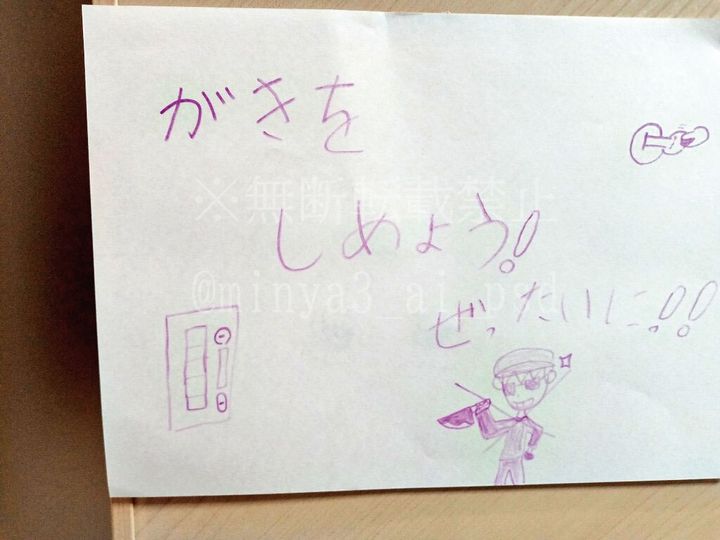 がきを
しめよう!
ぜったいに!!
※無断転載禁止
@minya3_ai_pad